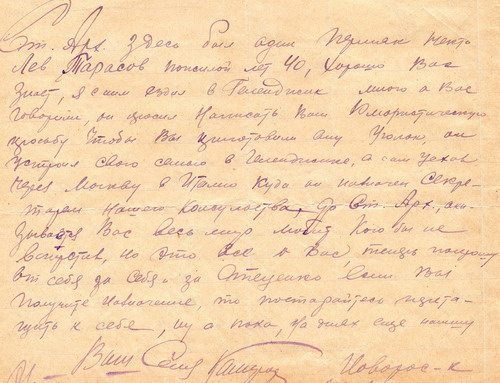 Ст. Арх. здесь был один пермяк некто
Лев Тарасов пожилой лет 40, хорошо Вас
знает, я с ним ездил в Геленджик много о Вас
говорили, он просил написать Вам юмористическую
просьбу чтобы Вы приготовили ему уголок, он
устроил свою семью в Геленджике, а сам уехал
через Москву в Италию куда он назначен секре-
тарем нашего консульства, Ст. Арх., ока-
зывается Вас весь мир кого бы не
встретив, но это все о Вас, теперь попрошу
от себя за себя и за если Вы
получите назначение, то постарайтесь перета-
щить к себе, ну а пока, на днях еще напишу
Ваш Новорос-к